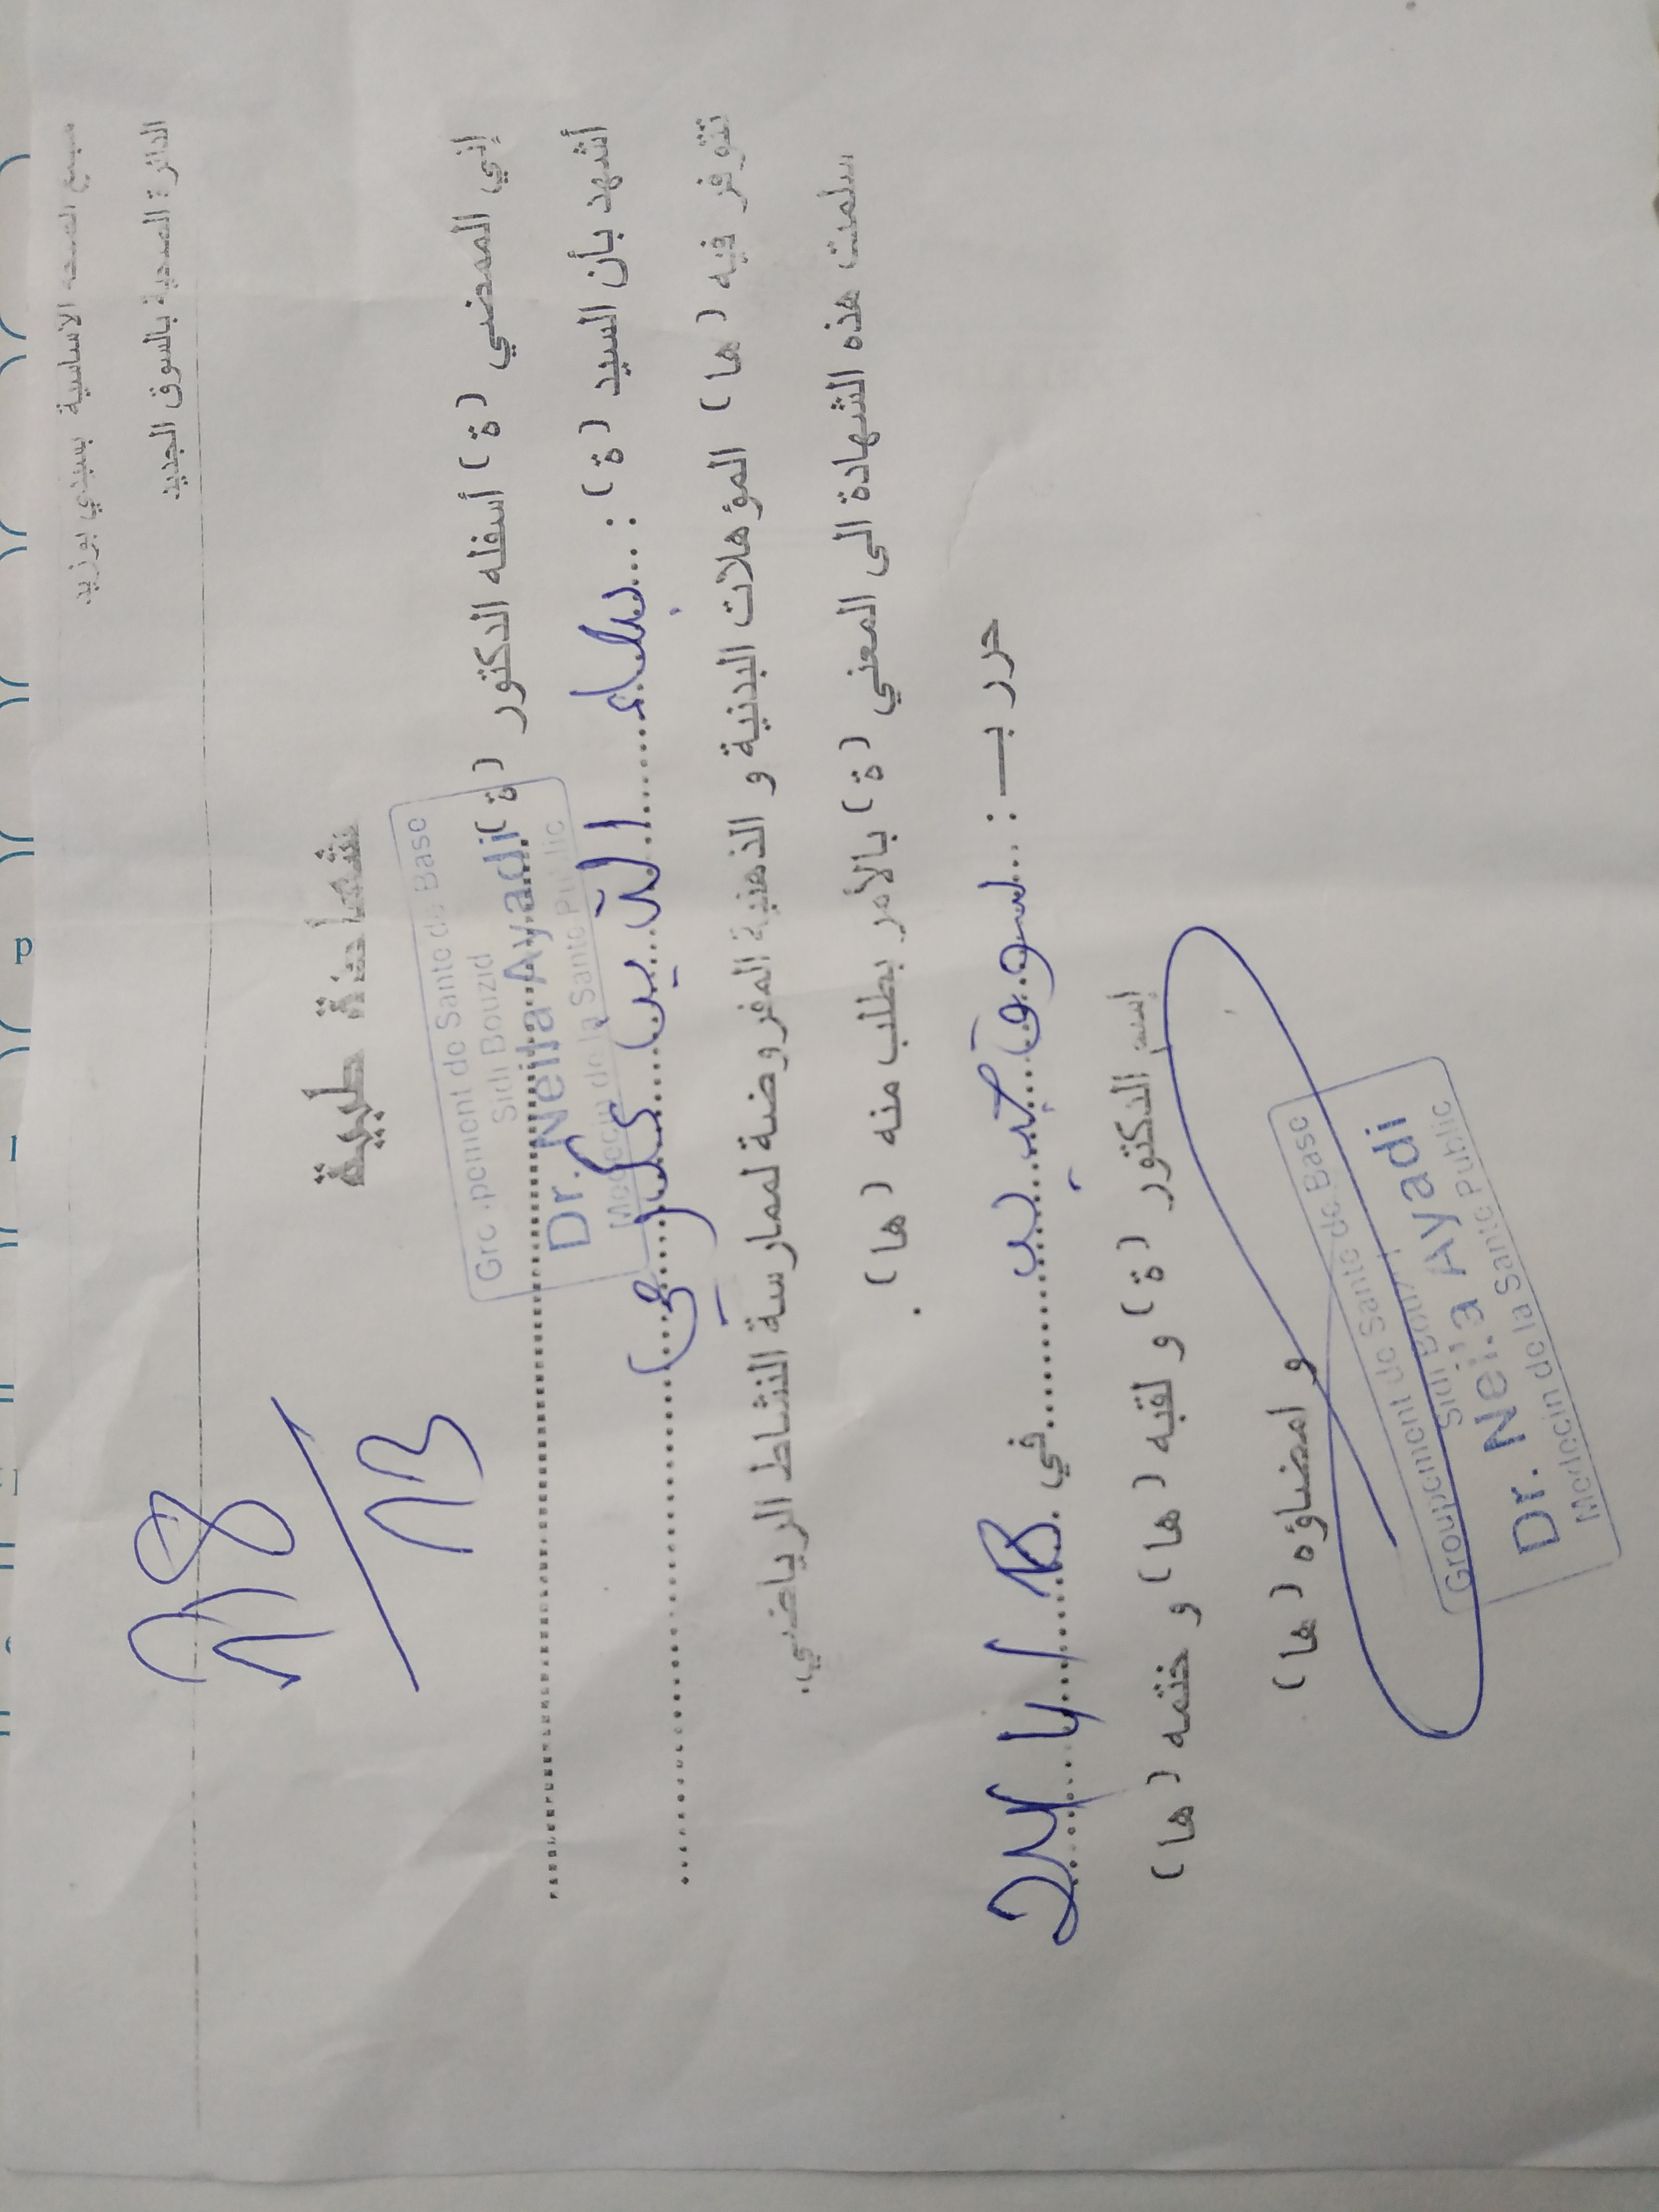 مجمع الصحة الاساسية بسيدي بوزيد
الدائرة الصحية بالسوق الجديد
118
13
شهادة طبية
إني الممضي (ة) أسفله الدكتور (ة)
Groupement de Sante de Base
Sidi Bouzid
Dr. Neila Ayadi
Medecin de la Sante Public
أشهد بأن السيد (ة) : بهاء الدين
تتوفر فيه (ها) المؤهلات البدنية و الذهنية المفروضة لممارسة النشاط الرياضي.
سلمت هذه الشهادة الى المعني (ة) بالأمر بطلب منه (ها) .
حرر بـ : سوق جديد في
إسم الدكتور (ة) و لقبه (ها) و ختمه (ها)
و امضاؤه (ها)
Groupement de Sante de Base
Sidi Bouzid
Dr. Neila Ayadi
Medecin de la Sante Public